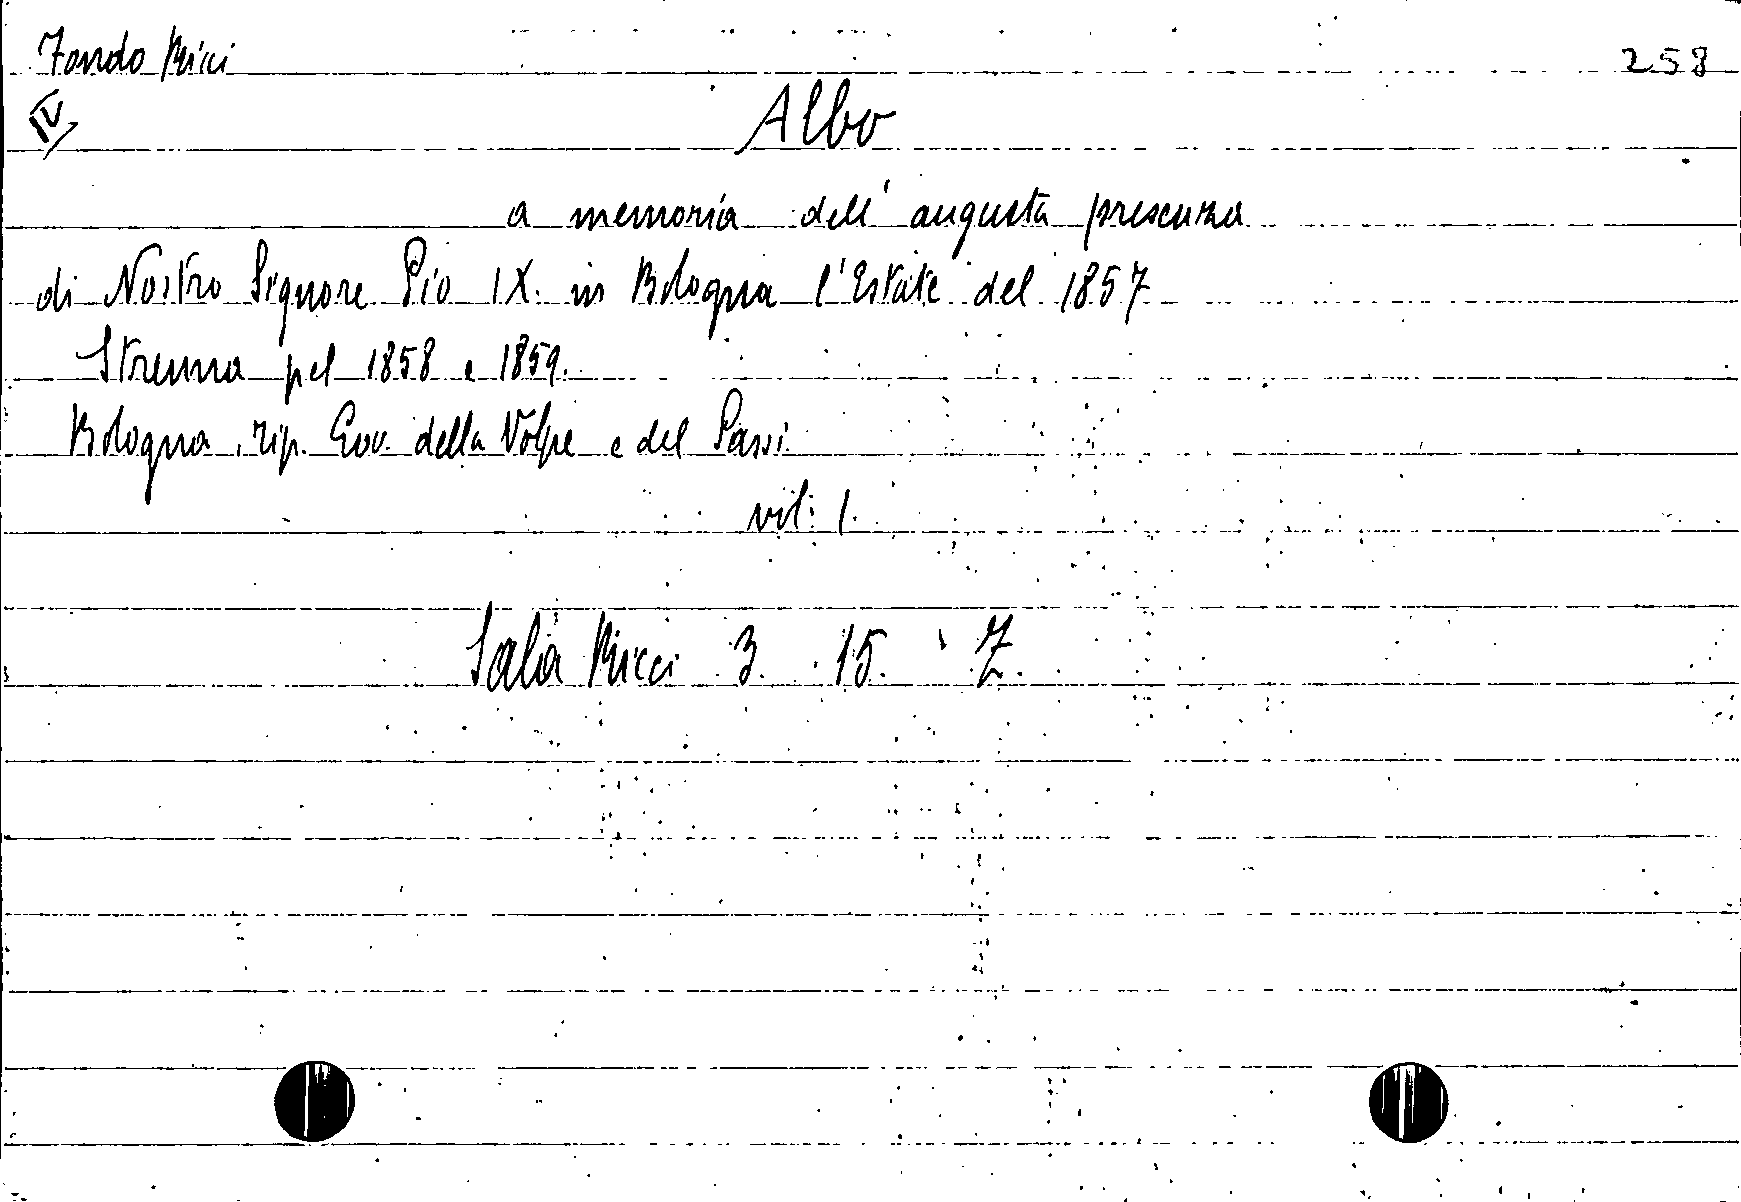 Fondo Ricci
258
IV
Albo
a memoria dell'augusta presenza
di Nostro Signore Pio IX. in Bologna l'Estate del 1857
Strenna pel 1858 e 1859.
Bologna, tip. Gov. della Volpe e del Sassi.
vol: 1.
Sala Ricci 3. 15. Z.